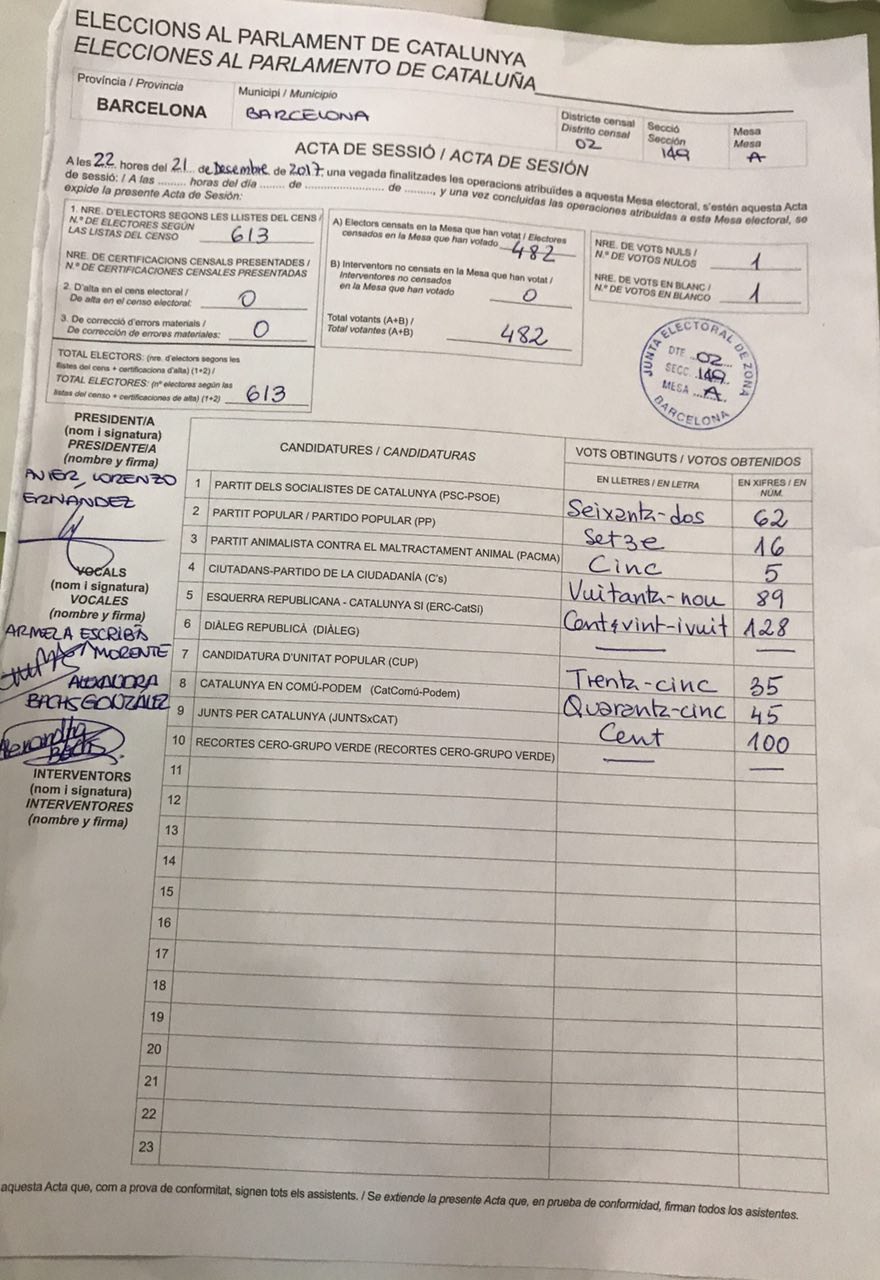 ELECCIONS AL PARLAMENT DE CATALUNYA
ELECCIONES AL PARLAMENTO DE CATALUÑA
Província / Provincia
BARCELONA
Municipi / Municipio
BARCELONA
Districte censal
Distrito censal
02
Secció
Sección
149
Mesa
Mesa
A
ACTA DE SESSIÓ / ACTA DE SESIÓN
A les 22 hores del 21 de Desembre de 2017, una vegada finalitzades les operacions atribuïdes a aquesta Mesa electoral, s'estén aquesta Acta
de sessió: / A las ......... horas del día ....... de ........................... de ........., y una vez concluidas las operaciones atribuidas a esta Mesa electoral, se
expide la presente Acta de Sesión:
1. NRE. D'ELECTORS SEGONS LES LLISTES DEL CENS /
N.º DE ELECTORES SEGÚN
LAS LISTAS DEL CENSO
613
NRE. DE CERTIFICACIONS CENSALS PRESENTADES /
N.º DE CERTIFICACIONES CENSALES PRESENTADAS
2. D'alta en el cens electoral /
De alta en el censo electoral:
0
3. De correcció d'errors materials /
De corrección de errores materiales:
0
TOTAL ELECTORS: (nre. d'electors segons les
llistes del cens + certificacions d'alta) (1+2) /
TOTAL ELECTORES: (nº electores según las
listas del censo + certificaciones de alta) (1+2)
613
A) Electors censats en la Mesa que han votat / Electores
censados en la Mesa que han votado
482
B) Interventors no censats en la Mesa que han votat /
Interventores no censados
en la Mesa que han votado
0
Total votants (A+B) /
Total votantes (A+B)
482
NRE. DE VOTS NULS /
N.º DE VOTOS NULOS
1
NRE. DE VOTS EN BLANC /
N.º DE VOTOS EN BLANCO
1
JUNTA ELECTORAL DE ZONA
DTE. 02
SECC. 149
MESA A
BARCELONA
PRESIDENT/A
(nom i signatura)
PRESIDENTE/A
(nombre y firma)
AVIER LORENZO
ERNANDEZ
VOCALS
(nom i signatura)
VOCALES
(nombre y firma)
ARMELA ESCRIBÀ
MORENTE
ALEXANDRA
BACHS GONZÁLEZ
INTERVENTORS
(nom i signatura)
INTERVENTORES
(nombre y firma)
CANDIDATURES / CANDIDATURAS
VOTS OBTINGUTS / VOTOS OBTENIDOS
EN LLETRES / EN LETRA
EN XIFRES / EN NÚM.
1 PARTIT DELS SOCIALISTES DE CATALUNYA (PSC-PSOE) Seixanta-dos 62
2 PARTIT POPULAR / PARTIDO POPULAR (PP) Setze 16
3 PARTIT ANIMALISTA CONTRA EL MALTRACTAMENT ANIMAL (PACMA) Cinc 5
4 CIUTADANS-PARTIDO DE LA CIUDADANÍA (C's) Vuitanta-nou 89
5 ESQUERRA REPUBLICANA - CATALUNYA SI (ERC-CatSí) Cent vint-i vuit 128
6 DIÀLEG REPUBLICÀ (DIÀLEG) —— —
7 CANDIDATURA D'UNITAT POPULAR (CUP) Trenta-cinc 35
8 CATALUNYA EN COMÚ-PODEM (CatComú-Podem) Quaranta-cinc 45
9 JUNTS PER CATALUNYA (JUNTSxCAT) Cent 100
10 RECORTES CERO-GRUPO VERDE (RECORTES CERO-GRUPO VERDE) —— —
11
12
13
14
15
16
17
18
19
20
21
22
23
aquesta Acta que, com a prova de conformitat, signen tots els assistents. / Se extiende la presente Acta que, en prueba de conformidad, firman todos los asistentes.